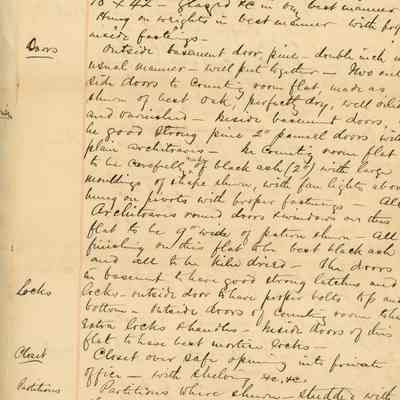 18 x 42 - glazed &c in our best manner
Hung on weights in best manner with
inside fastings -
Doors
Outside basement door pine - double inch in
usual manner - well put together - Two out
side doors to Counting room flat, made as
shewn of best oak, perfectly dry, well oiled
and varnished - Inside basement doors,
be good strong pine 2" pannell doors with
plain architraves - In Counting room flat
to be carefully made of black ash (2") with large
mouldings of shape shewn, with fan lights abov
hung on pivots with proper fastenings - All
Architraves round doors & windows on this
flat to be 9" wide of patron shewn - All
finishing on this flat to be best black ash
and all to be kiln dried - The doors
in basement to have good strong latches and
Locks
locks - outside door to have proper bolts top and
bottom - Outside doors of Counting room to have
extra locks & handles - Inside doors of this
flat to have best mortice locks -
Closet
Closet over safe opening into private
office - with shelving &c, &c.
Partitions
Partitions where shewn - studded with